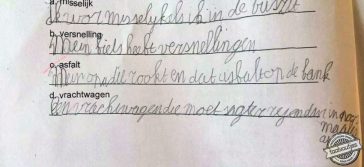 a. misselijk
ik wor misselyk als ik in de bus zit
b. versnelling
Mijn fiets heeft versnellingen
c. asfalt
Mijn oma die rookt en dat asbalt op de bank
d. vrachtwagen
Een vrachtwagen die moet agter
taalvoutjes